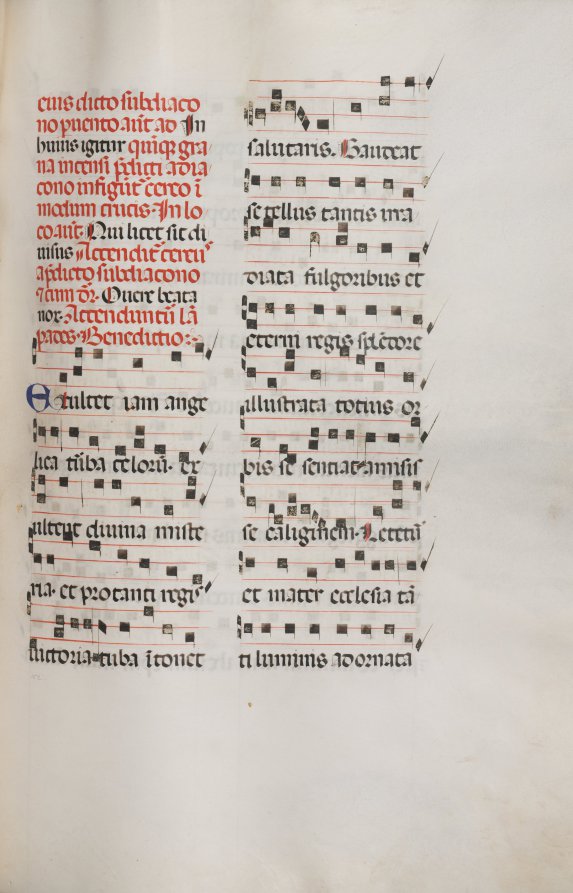 eius dicto subdiaco
no puento aūt ad In
huius igitur quiqꝫ gra
na incensi p̄dicti a dia
cono infigūt̄ cereo ī
modum crucis. In lo
co aūt. Qui licet sit di
uisus Accendit̄ cereus
a p̄dicto subdiacono
⁊ cum dr̄. O uere beata
nox. Accenduntur lā
pades. Benedictio:
Exultet iam ange
lica tūba celorū. ex
ultent diuina miste
ria. et pro tanti regis
uictoria tuba ītonet
salutaris. Gaudeat
se tellus tantis irra
diata fulgoribus et
eterni regis splēdore
illustrata totius or
bis se sentiat amisis
se caliginem. Letetur
et mater ecclesia tā
ti luminis adornata